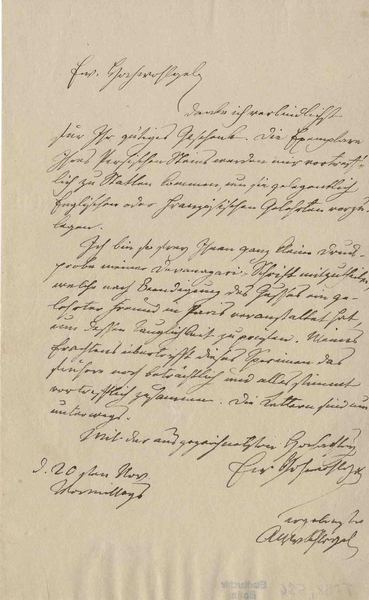 Ew. Hochwohlgeb.
danke ich verbindlichst
für Ihr gütiges Geschenk. Die Exemplare
Ihres Persischen werden mir vortreff-
lich zu Statten kommen, um sie gelegentlich
Englischen oder Französischen Gelehrten vorzu-
legen.
Ich bin so frey Ihnen ganz kleine Druck-
probe meiner Devanagari-Schrift mitzutheilen,
welche nach Beendigung des Gusses ein ge-
lehrter Freund in Paris veranstaltet hat,
um dessen Tauglichkeit zu prüfen. Meines
Erachtens übertrifft dieses Specimen das
frühere noch beträchtlich und alles stimmt
vortrefflich zusammen. Die Lettern sind nun
unterwegs.
Mit der ausgezeichnetsten Hochachtung
Ew Hochwohlgeb
d. 20sten Nov
Vormittags
ergebenster
AWvSchlegel